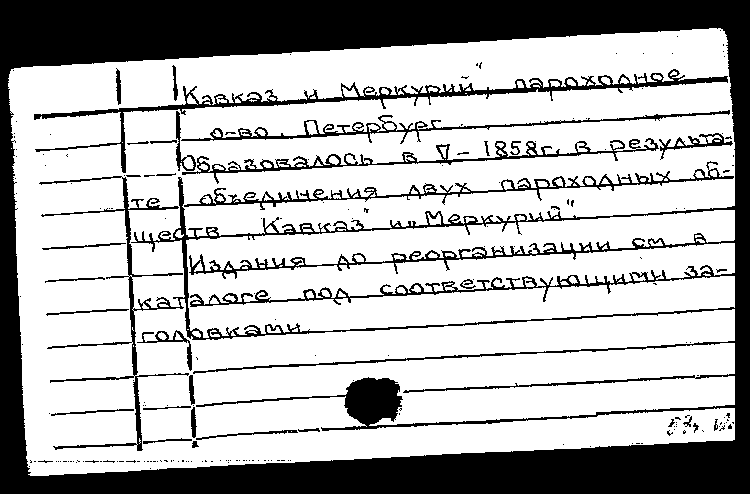 Кавказ и Меркурий", пароходное
о-во. Петербург
Образовалось в V – 1858г. в результа-
те объединения двух пароходных об-
ществ „Кавказ" и „Меркурий".
Издания до реорганизации см. в
каталоге под соответствующими за-
головками.